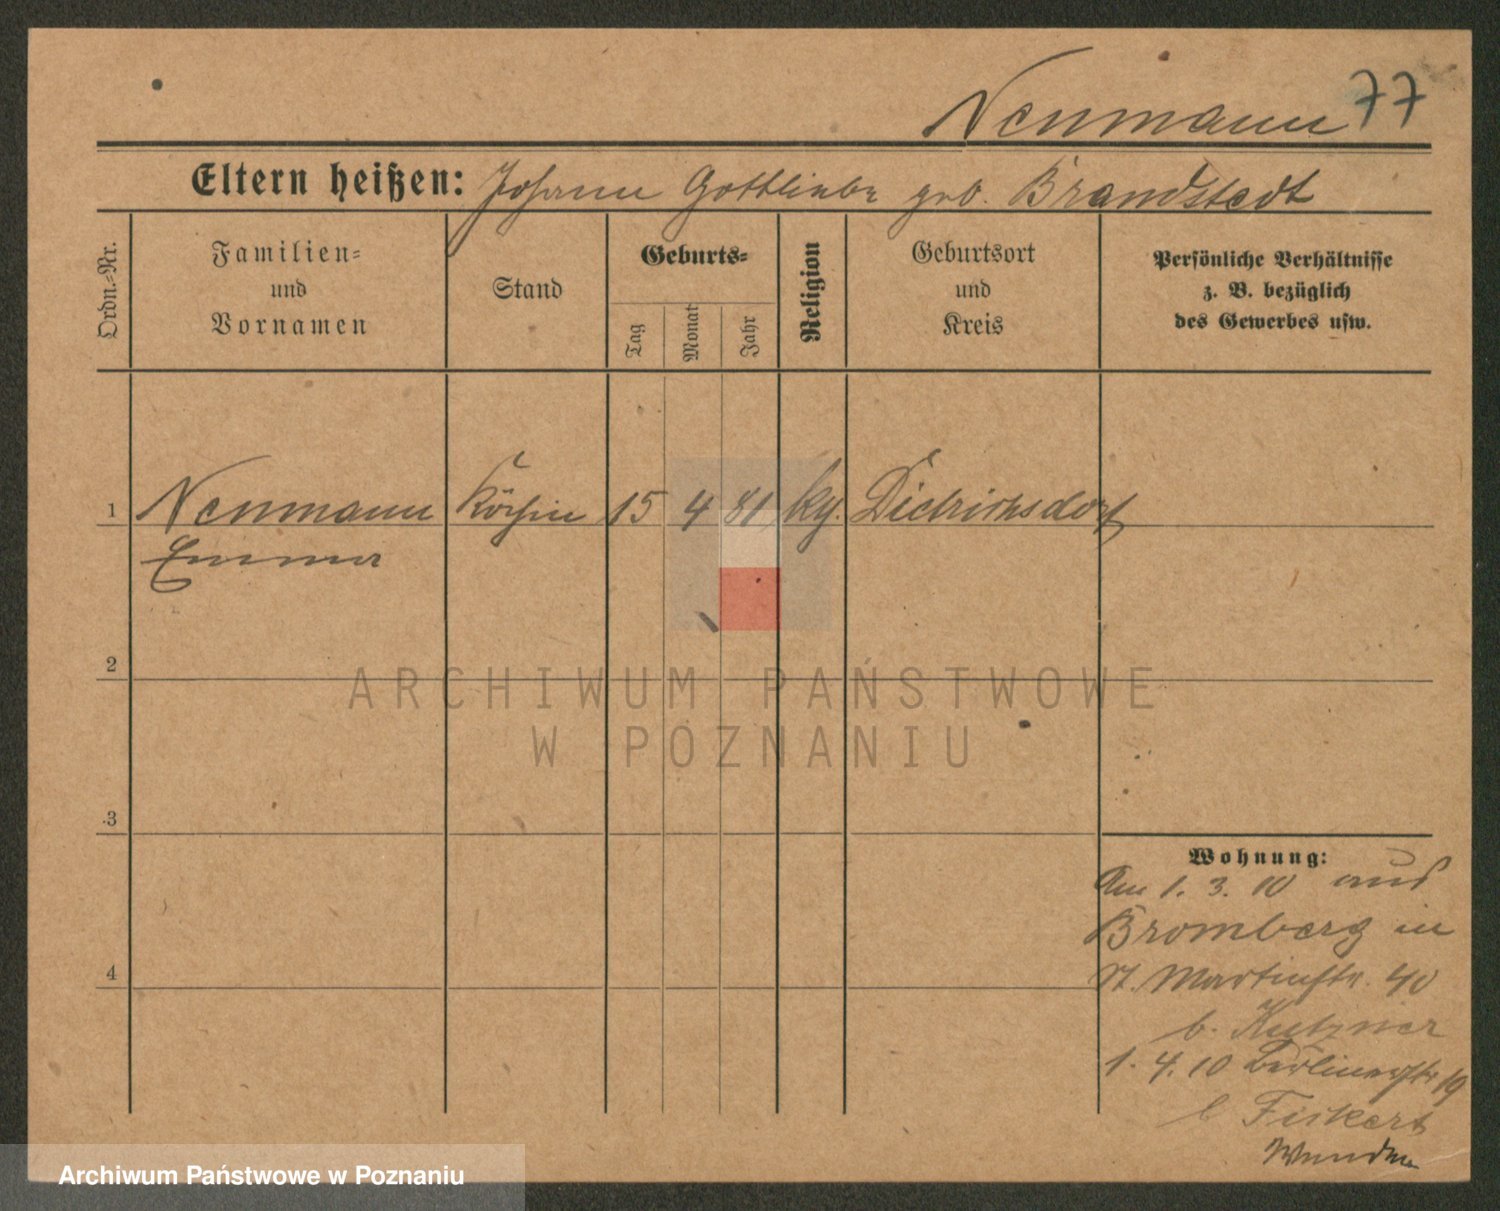 Neumann 77
Eltern heißen: Johann Gottliebe geb. Brandstedt
Ordn.-Nr.
Familien-
und
Vornamen
Stand
Geburts-
Tag
Monat
Jahr
Religion
Geburtsort
und
Kreis
Persönliche Verhältnisse
z. B. bezüglich
des Gewerbes usw.
1 Neumann Köchin 15 4 81 Dietrichsdorf
Emma
2
3
4
Wohnung:
Am 1. 3. 10 aus
Bromberg in
St. Martinstr. 40
b. Kutzner
1. 4. 10 Berlinerstr 19
b Fickert
ARCHIWUM PAŃSTWOWE
W POZNANIU
Archiwum Państwowe w Poznaniu